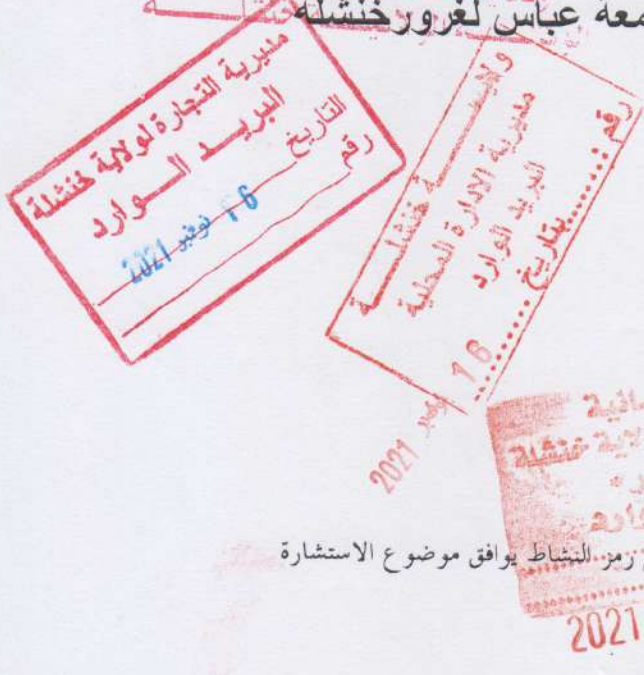 معة عباس لغرور خنشلة
مديرية التجارة لولاية خنشلة
البريد الوارد
التاريخ
16 نوفمبر 2021
رقم
ولاية خنشلة
مديرية الادارة المحلية
البريد الوارد
رقم:..........بتاريخ.........
16 نوفمبر 2021
لاية خنشلة
رمز النشاط يوافق موضوع الاستشارة
2021